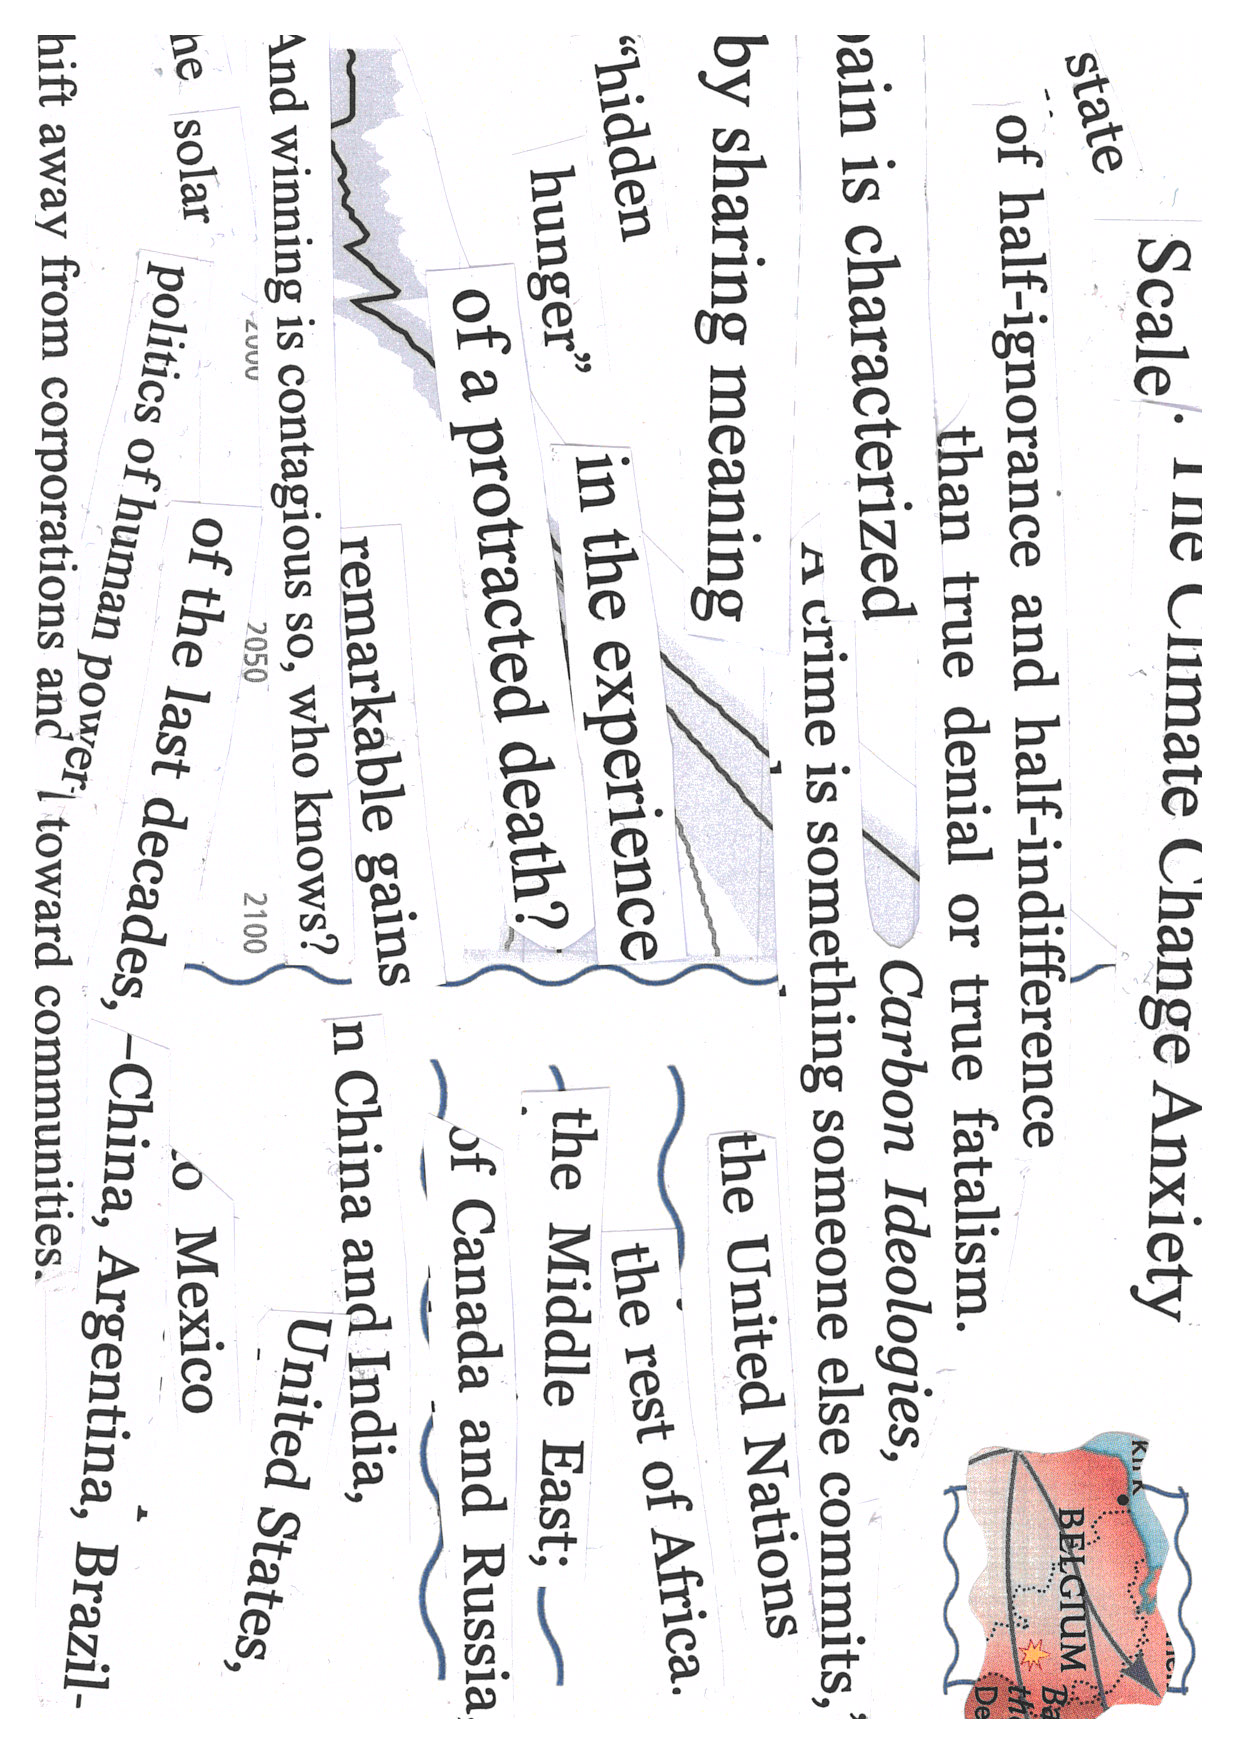 state
Scale. The Climate Change Anxiety
of half-ignorance and half-indifference
than true denial or true fatalism.
Carbon Ideologies,
pain is characterized
A crime is something someone else commits,”
by sharing meaning
the United Nations
“hidden
hunger”
in the experience
the rest of Africa.
of a protracted death?
the Middle East;
of Canada and Russia
remarkable gains
n China and India,
And winning is contagious so, who knows?
United States,
2000
2050
2100
he solar
of the last decades,
o Mexico
politics of human power
–China, Argentina, Brazil-
hift away from corporations and toward communities.
kirk
BELGIUM
Ba
the
De